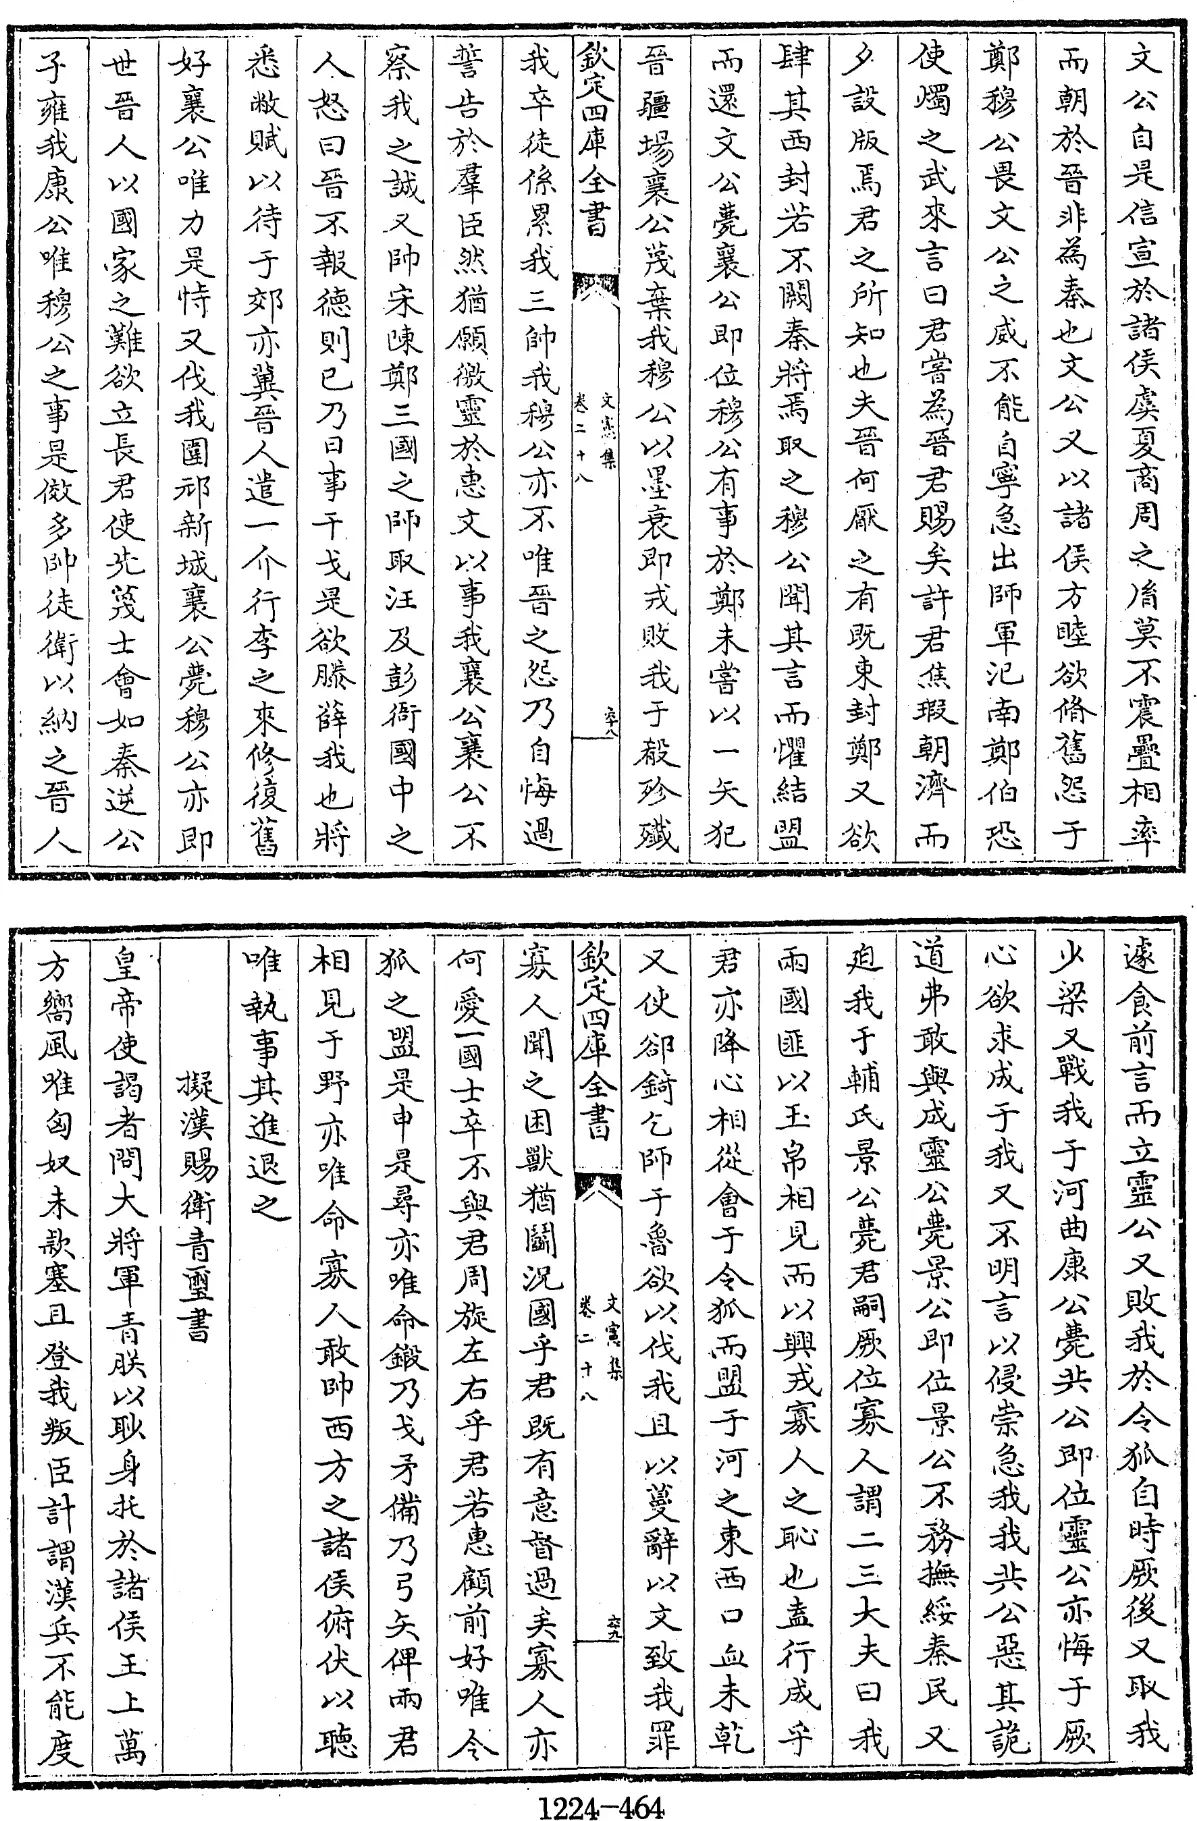 文公自是信宣於諸侯虞夏商周之胤莫不震疊相率
而朝於晉非為秦也文公又以諸侯方睦欲脩舊怨于
鄭穆公畏文公之威不能自寧急出師軍汜南鄭伯恐
使燭之武來言曰君嘗為晉君賜矣許君焦瑕朝濟而
夕設版焉君之所知也夫晉何厭之有既東封鄭又欲
肆其西封若不闕秦將焉取之穆公聞其言而懼結盟
而還文公薨襄公即位穆公有事於鄭未嘗以一矢犯
晉疆場襄公蔑棄我穆公以墨衰即戎敗我于殽殄殲
欽定四庫全書
文憲集
卷二十八
六十八
我卒徒係累我三帥我穆公亦不唯晉之怨乃自悔過
誓告於羣臣然猶願徼靈於惠文以事我襄公襄公不
察我之誠又帥宋陳鄭三國之師取汪及彭衙國中之
人怒曰晉不報德則已乃曰事干戈是欲滕薛我也將
悉敝賦以待于郊亦冀晉人遣一介行李之來修復舊
好襄公唯力是恃又伐我圍邧新城襄公薨穆公亦即
世晉人以國家之難欲立長君使先篾士會如秦逆公
子雍我康公唯穆公之事是倣多帥徒衛以納之晉人
遽食前言而立靈公又敗我於令狐自時厥後又取我
少梁又戰我于河曲康公薨共公即位靈公亦悔于厥
心欲求成于我又不明言以侵崇急我我共公惡其詭
道弗敢與成靈公薨景公即位景公不務撫綏秦民又
迨我于輔氏景公薨君嗣厥位寡人謂二三大夫曰我
兩國匪以玉帛相見而以興戎寡人之恥也盍行成乎
君亦降心相從會于令狐而盟于河之東西口血未乾
又使郤錡乞師于魯欲以伐我且以蔓辭以文致我罪
欽定四庫全書
文憲集
卷二十八
六十九
寡人聞之困獸猶鬭況國乎君既有意督過矣寡人亦
何愛一國士卒不與君周旋左右乎君若惠顧前好唯令
狐之盟是申是尋亦唯命鍛乃戈矛備乃弓矢俾兩君
相見于野亦唯命寡人敢帥西方之諸侯俯伏以聽
唯執事其進退之
擬漢賜衛青璽書
皇帝使謁者問大將軍青朕以耿身托於諸侯王上萬
方嚮風唯匈奴未款塞且登我叛臣計謂漢兵不能度
1224-464